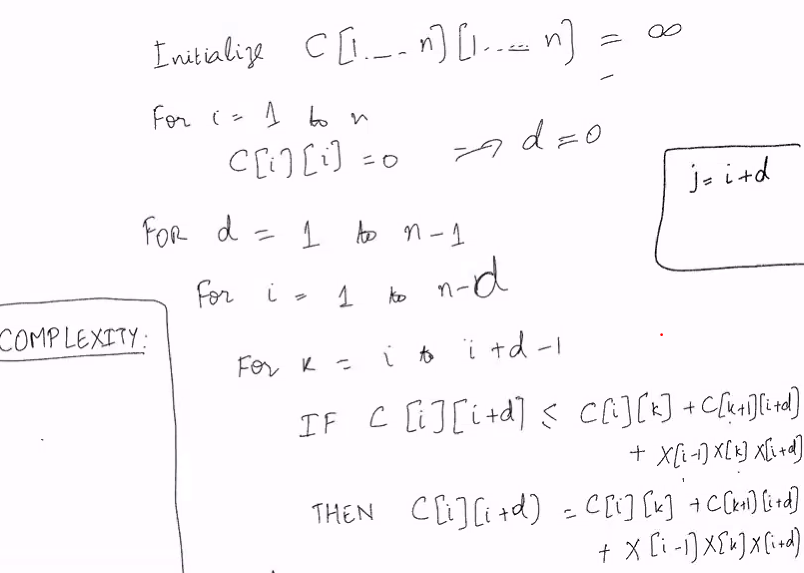 Initialize C[1.--n][1.....n] = ∞
For i = 1 to n
C[i][i] = 0 ⇒ d = 0
j = i+d
FOR d = 1 to n-1
For i = 1 to n-d
COMPLEXITY:
For k = i to i+d-1
IF C[i][i+d] ≤ C[i][k] + C[k+1][i+d]
+ X[i-1]X[k]X[i+d]
THEN C[i][i+d) = C[i][k] + C[k+1)[i+d]
+ X[i-1]X[k]X[i+d)